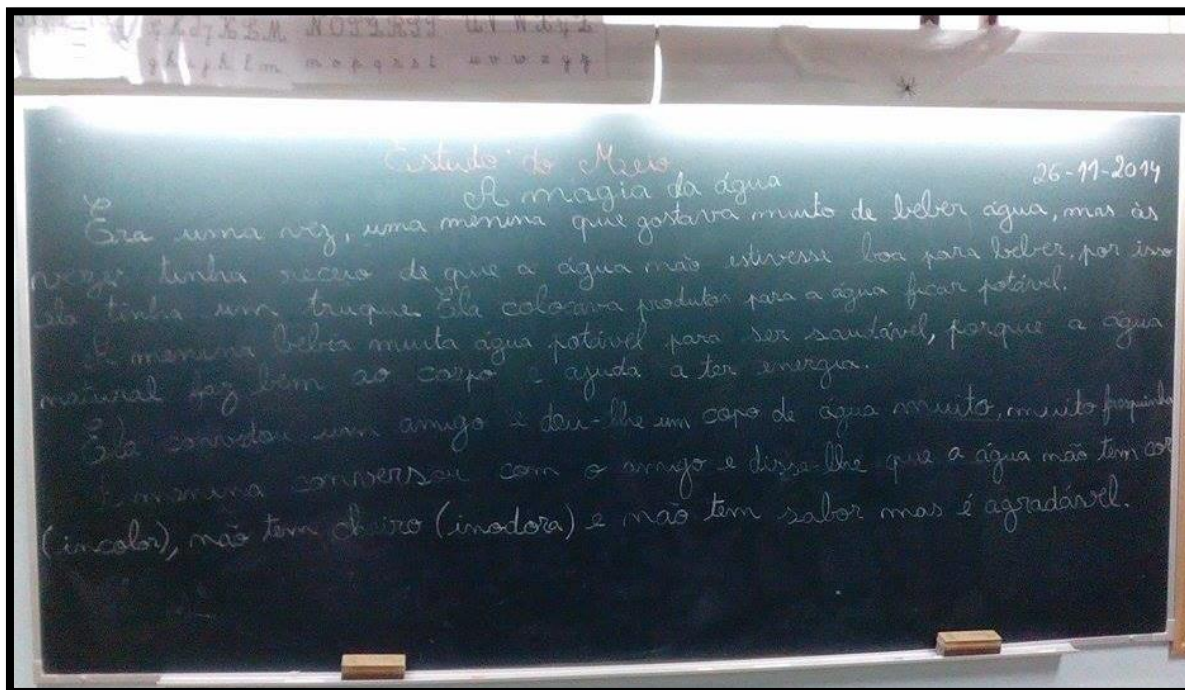 N O P Q R S T U V W X Y Z
g h i j k l m n o p q r s t u v w x y z
Estudo do Meio
26-11-2014
A magia da água
Era uma vez, uma menina que gostava muito de beber água, mas às
vezes tinha receio de que a água não estivesse boa para beber, por isso
ela tinha um truque. Ela colocava produtos para a água ficar potável.
A menina bebia muita água potável para ser saudável, porque a água
natural faz bem ao corpo e ajuda a ter energia.
Ela convidou um amigo e deu-lhe um copo de água muito, muito fresquinha
A menina conversou com o amigo e disse-lhe que a água não tem cor
(incolor), não tem cheiro (inodora) e não tem sabor mas é agradável.